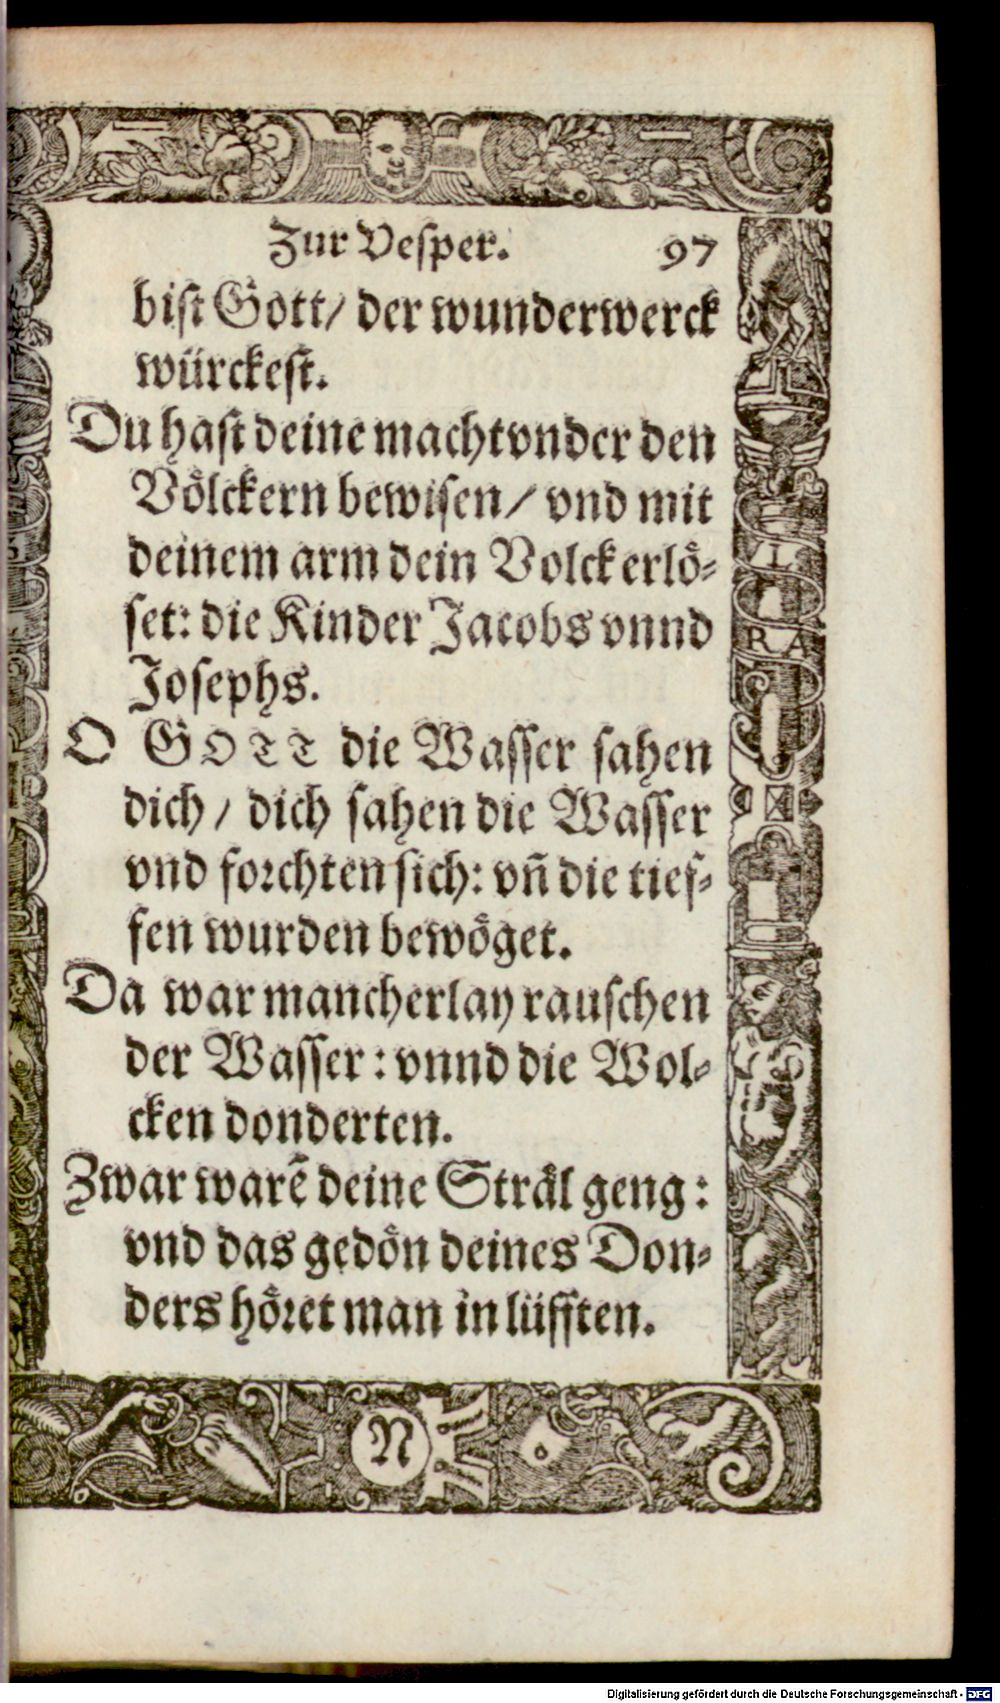 Zur Vesper. 97
bist Gott/ der wunderwerck
würckest.
Du hast deine macht vnder den
Völckern bewisen/ vnd mit
deinem arm dein Volck erlö⸗
set: die Kinder Jacobs vnnd
Josephs.
O GOTT die Wasser sahen
dich/ dich sahen die Wasser
vnd forchten sich: vñ die tief⸗
fen wurden bewöget.
Da war mancherlay rauschen
der Wasser: vnnd die Wol⸗
cken donderten.
Zwar warẽ deine Sträl geng:
vnd das gedön deines Don⸗
ders höret man in lüfften.
I
RA
N
Digitalisierung gefördert durch die Deutsche Forschungsgemeinschaft - DFG